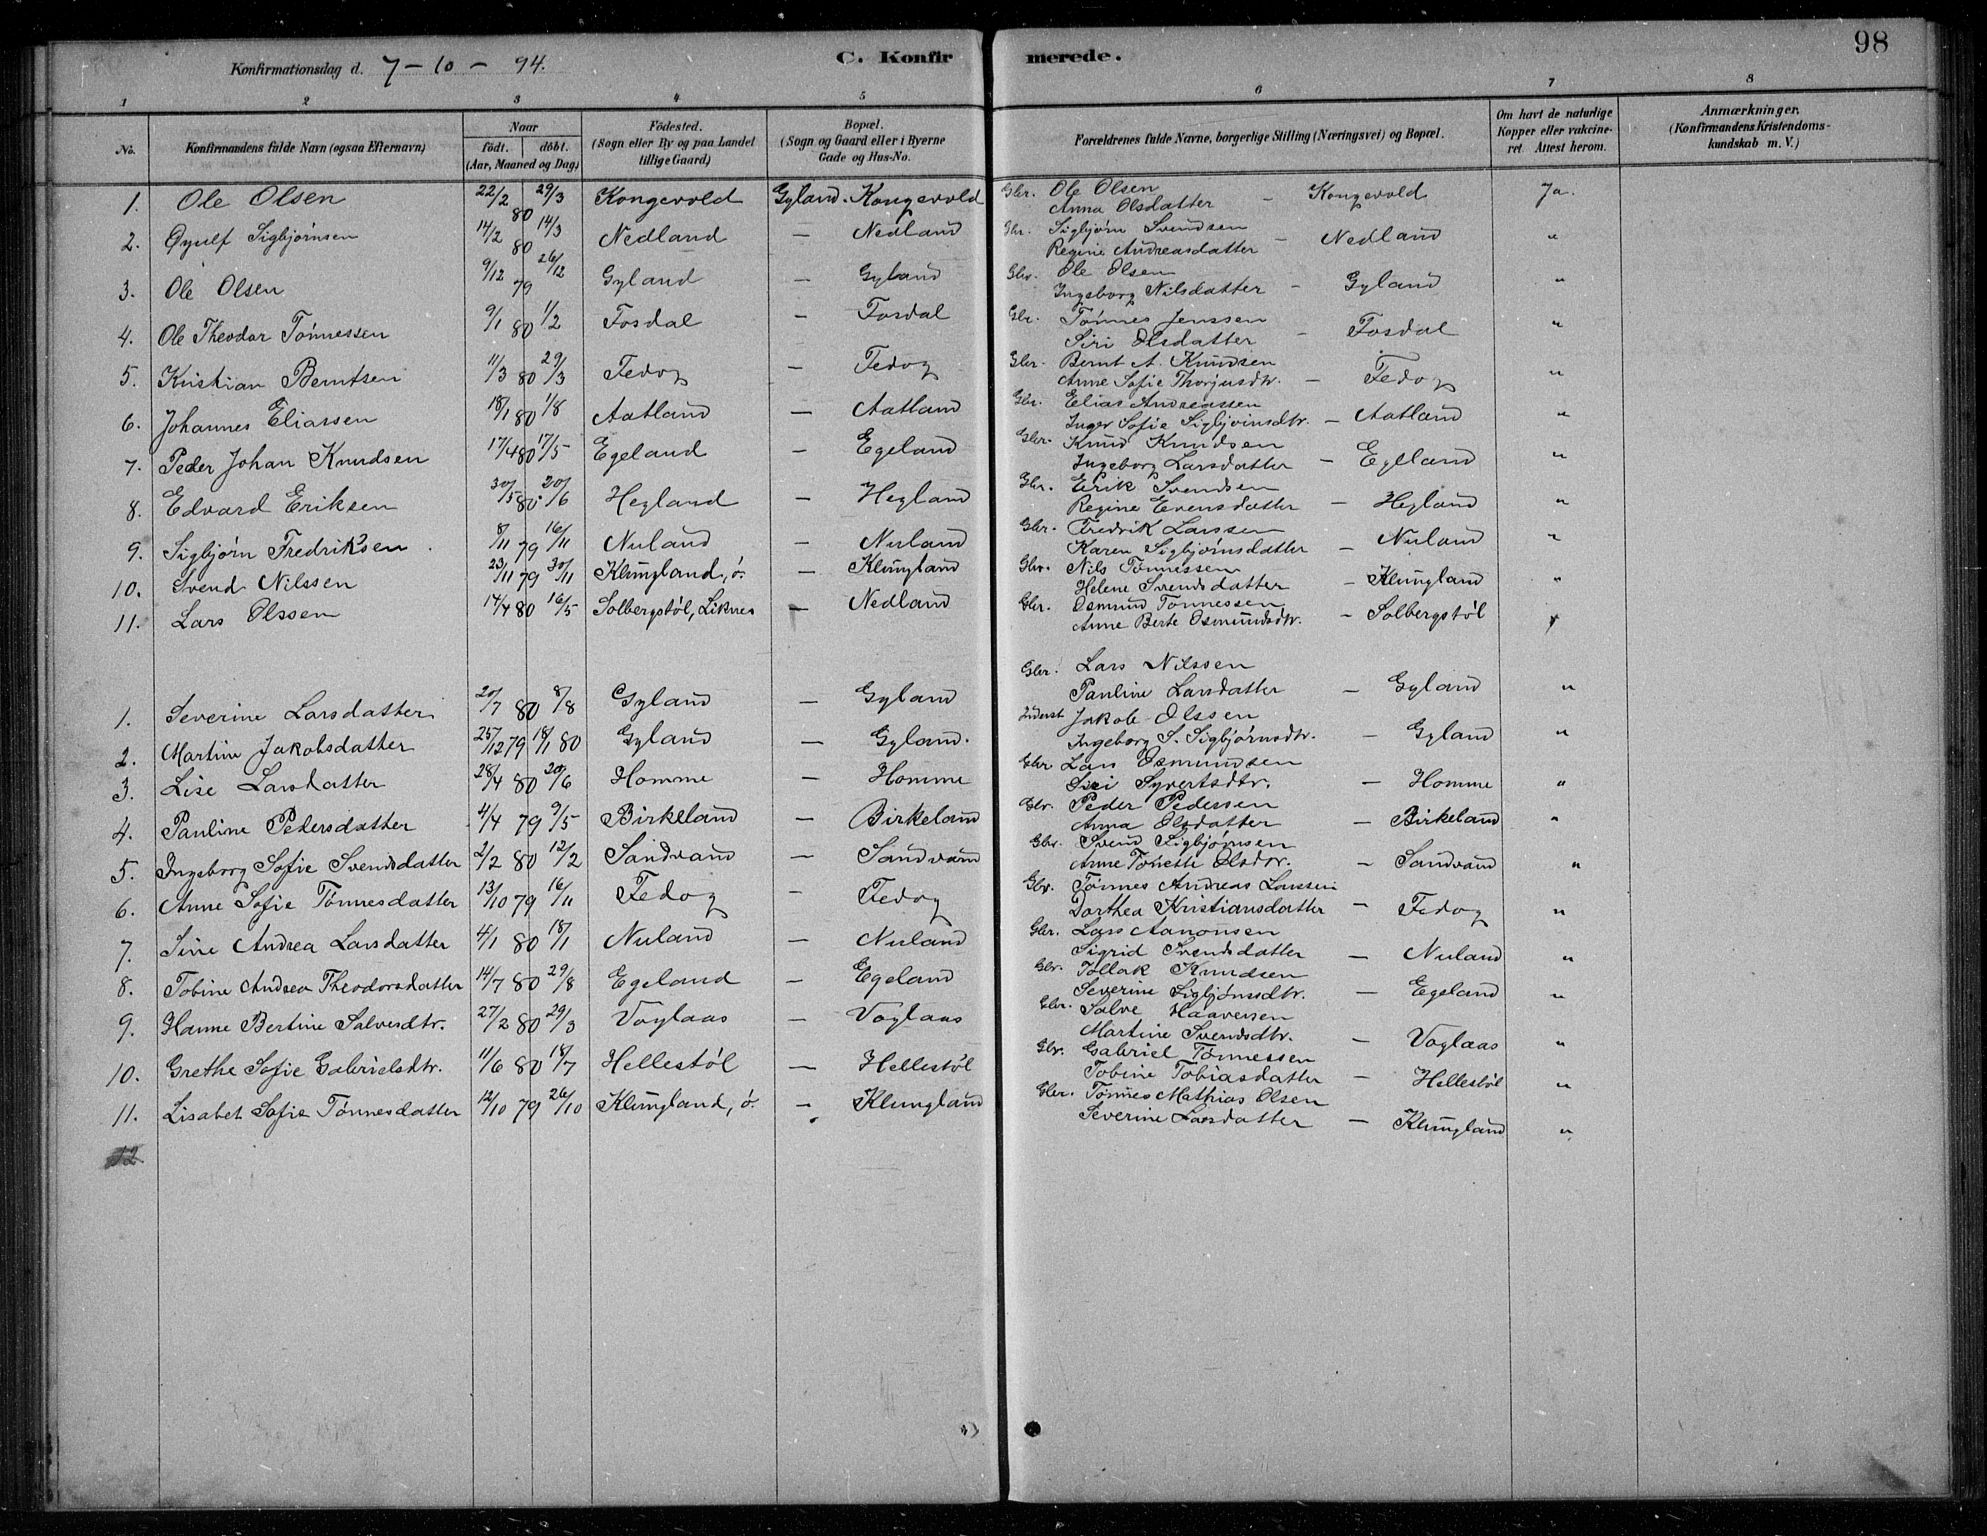 98
Konfirmationsdag d. 7-10-94.
C. Konfirmerede.
1 2 3 4 5 6 7 8
No.
Konfirmandens fulde Navn (ogsaa Efternavn)
Naar
født. døbt.
(Aar, Maaned og Dag)
Födested.
(Sogn eller By og paa Landet
tillige Gaard)
Bopæl.
(Sogn og Gaard eller i Byerne
Gade og Hus-No.
Forældrenes fulde Navne, borgerlige Stilling (Næringsvei) og Bopæl.
Om havt de naturlige
Kopper eller vakcine-
ret. Attest herom.
Anmærkninger.
(Konfirmandens Kristendoms-
kundskab m. V.)
1. Ole Olsen 22/2 80 29/3 Kongevold Gyland - Kongevold Gbr. Ole Olsen
Anna Olsdatter - Kongevold Ja.
2. Øyulf Sigbjørnsen 14/2 80 14/3 Nedland — Nedland Gbr. Sigbjørn Svendsen
Regine Andreasdatter - Nedland "
3. Ole Olsen 9/12 79 26/12 Gyland — Gyland Gbr. Ole Olsen
Ingeborg Nilsdatter - Gyland "
4. Ole Theodor Tønnessen 9/1 80 1/2 Fosdal — Fosdal Gbr. Tønnes Jenssen
Siri Olsdatter - Fosdal "
5. Kristian Berntsen 11/3 80 29/3 Fedog — Fedog Gbr. Bernt A. Knudsen
Anne Sofie Thorjusdtr. - Fedog "
6. Johannes Eliassen 18/1 80 1/8 Aatland — Aatland Gbr. Elias Andreassen
Inger Sofie Sigbjørnsdtr. - Aatland "
7. Peder Johan Knudsen 17/4 80 17/5 Egeland — Egeland Gbr. Knud Knudsen
Ingeborg Larsdatter - Egeland "
8. Edvard Eriksen 30/5 80 20/6 Hegland — Hegland Gbr. Erik Svendsen
Regine Evensdatter - Hegland "
9. Sigbjørn Fredriksen 8/11 79 16/11 Nuland — Nuland Gbr. Fredrik Larssen
Karen Sigbjørnsdatter - Nuland "
10. Svend Nilssen 23/11 79 30/11 Klungland, ø. — Klungland Gbr. Nils Tønnessen
Helene Svendsdatter - Klungland "
11. Lars Olssen 14/4 80 16/5 Solbergstøl, Liknes — Nedland Gbr. Osmund Tønnessen
Anne Berte Osmundsdtr. - Solbergstøl "
1. Severine Larsdatter 20/7 80 8/8 Gyland — Gyland Gbr. Lars Nilssen
Pauline Larsdatter - Gyland "
2. Martine Jakobsdatter 25/12 79 18/1 80 Gyland — Gyland. Inderst Jakob Olssen
Ingeborg S. Sigbjørnsdtr. - Gyland "
3. Lise Larsdatter 28/4 80 20/6 Homme — Homme Gbr Lars Osmundsen
Siri Syvertsdtr. - Homme "
4. Pauline Pedersdatter 4/4 79 9/5 Birkeland — Birkeland Gbr. Peder Pedersen
Anna Olsdatter - Birkeland "
5. Ingeborg Sofie Svendsdatter 2/2 80 12/2 Sandvand — Sandvand Gbr. Svend Sigbjørnsen
Anne Tonette Olsdtr. - Sandvand "
6. Anne Sofie Tønnesdatter 13/10 79 16/11 Fedog — Fedog Gbr. Tønnes Andreas Larssen
Dorthea Kristiansdatter - Fedog "
7. Sine Andrea Larsdatter 4/1 80 18/1 Nuland — Nuland Gbr. Lars Aanonsen
Sigrid Svendsdatter - Nuland "
8. Tobine Andrea Theodorsdatter 14/7 80 29/8 Egeland — Egeland Gbr. Tollak Knudsen
Severine Sigbjørnsdtr. - Egeland "
9. Hanne Bertine Salvesdtr. 27/2 80 29/3 Voglaas — Voglaas Gbr. Salve Haaversen
Martine Svendsdtr. - Voglaas "
10. Grethe Sofie Gabrielsdtr. 11/6 80 18/7 Hellestøl — Hellestøl Gbr. Gabriel Tønnessen
Tobine Tobiasdatter - Hellestøl "
11. Lisabet Sofie Tønnesdatter 12/10 79 26/10 Klungland, ø. — Klungland Gbr. Tønnes Mathias Olsen
Severine Larsdatter — Klungland "
12.